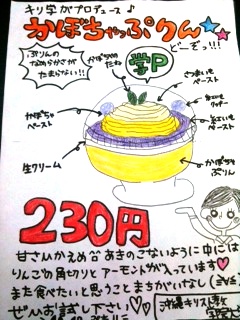 キリ学がプロデュース♪
かぼちゃっぷりん
どーぞっ!!!
ぷりんの
なめらかさが
たまらない!!
かぼちゃの
たね
学P
さつまいも
ペースト
紅いも
クッキー
紅いも
ペースト
かぼちゃ
ペースト
生クリーム
かぼちゃ
ぷりん
230円
甘さひかえめ&あきのこないように中には
りんごの角切りとアーモンドが入っています♡
また食べたいと思うことまちがいなし
ぜひお試し下さい♡
沖縄キリスト教